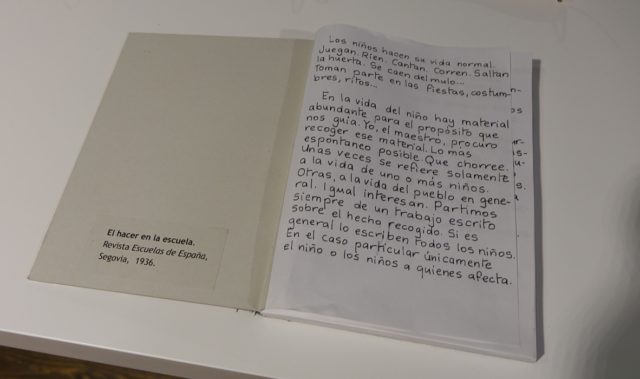 El hacer en la escuela.
Revista Escuelas de España,
Segovia, 1936.
Los niños hacen su vida normal.
Juegan. Rien. Cantan. Corren. Saltan
la huerta. Se caen del mulo...
Toman parte en las fiestas, costum-
bres, ritos...
En la vida del niño hay material
abundante para el propósito que
nos guia. Yo, el maestro, procuro
recoger ese material. Lo más
espontáneo posible. Que chorree.
Unas veces se refiere solamente
a la vida de uno o más niños.
Otras, a la vida del pueblo en gene-
ral. Igual interesan. Partimos
siempre de un trabajo escrito
sobre el hecho recogido. Si es
general lo escriben todos los niños.
En el caso particular únicamente
el niño o los niños a quienes afecta.